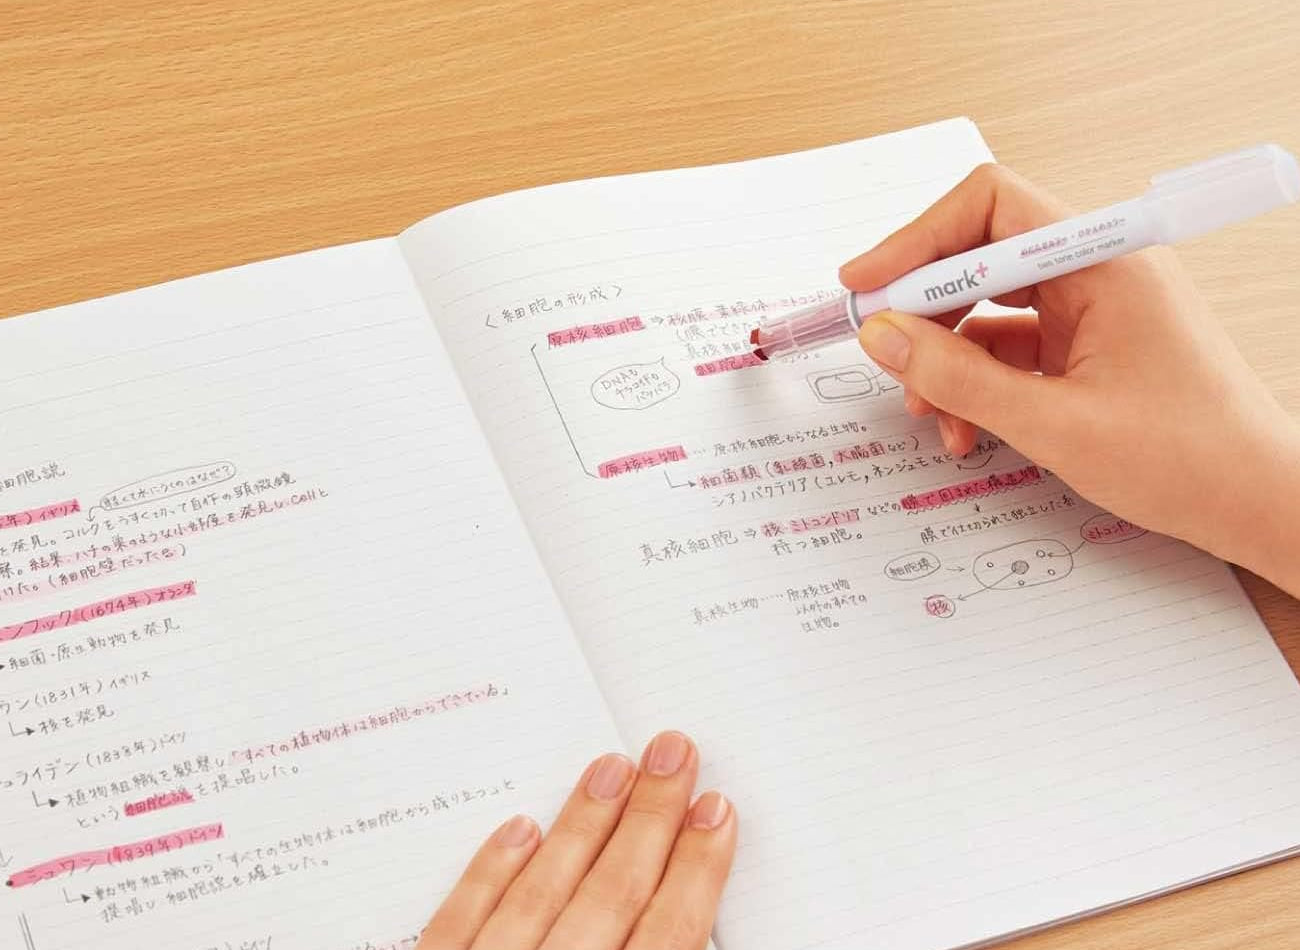 細胞説
年)イギリス
すくて水にうくのはなぜ?
を発見。コルクをうすく切って自作の顕微鏡
察。結果、ハチの巣のような小部屋を発見しCellと
けた。(細胞壁だった。)
ンフック(1674年)オランダ
細菌・原生動物を発見
ウン(1831年)イギリス
核を発見
ュライデン(1838年)ドイツ
植物組織を観察し「すべての植物体は細胞からできている」
という細胞説を提唱した。
シュワン(1839年)ドイツ
動物組織から「すべての生物体は細胞から成り立つ」と
提唱し細胞説を確立した。
ドイツ
〈細胞の形成〉
原核細胞 ⇒ 核膜・葉緑体・ミトコンドリア
(膜でできた
真核細胞
細胞壁 る。
DNAも
チラコイドも
バラバラ
原核生物 … 原核細胞からなる生物。
細菌類(乳酸菌,大腸菌など)
シアノバクテリア(ユレモ,ネンジュモなど)
真核細胞 ⇒ 核・ミトコンドリアなどの膜で囲まれた構造物を
持つ細胞。
膜で仕切られて独立した
細胞膜
ミトコンドリ
核
真核生物 …… 原核生物
以外のすべての
生物。
mark+
two tone color marker